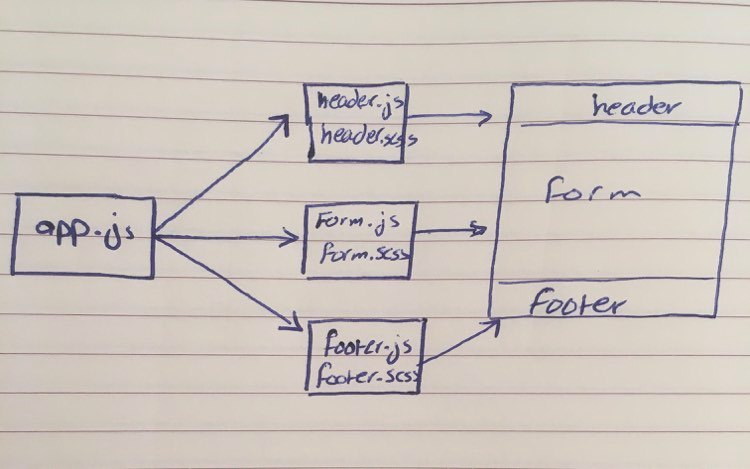 app.js
header.js
header.scss
Form.js
form.scss
footer.js
footer.scss
header
form
footer